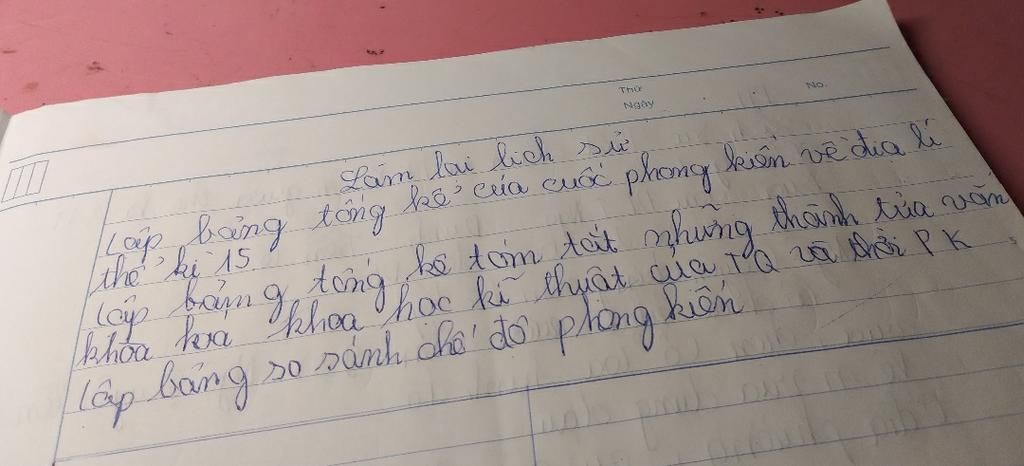 Thứ
Ngày
No.
Làm lai lich sử
Lập bảng tổng kê của cuốc phong kiến về địa lí
thế kỉ 15.
Lập bảng tổng kê tóm tắt những thành tủa văn
khóa hoá khoa học kĩ thuật của TQ và thời PK
Lập bảng so sánh chế độ phong kiến